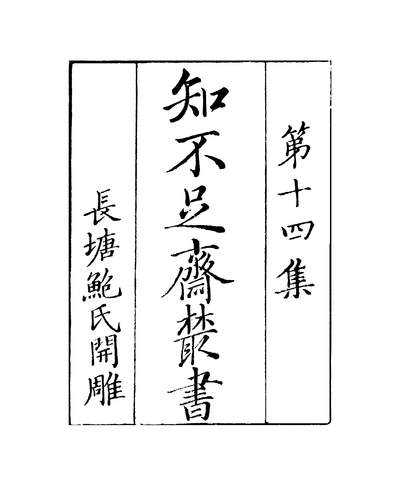 第十四集
知不足齋叢書
長塘鮑氏開雕